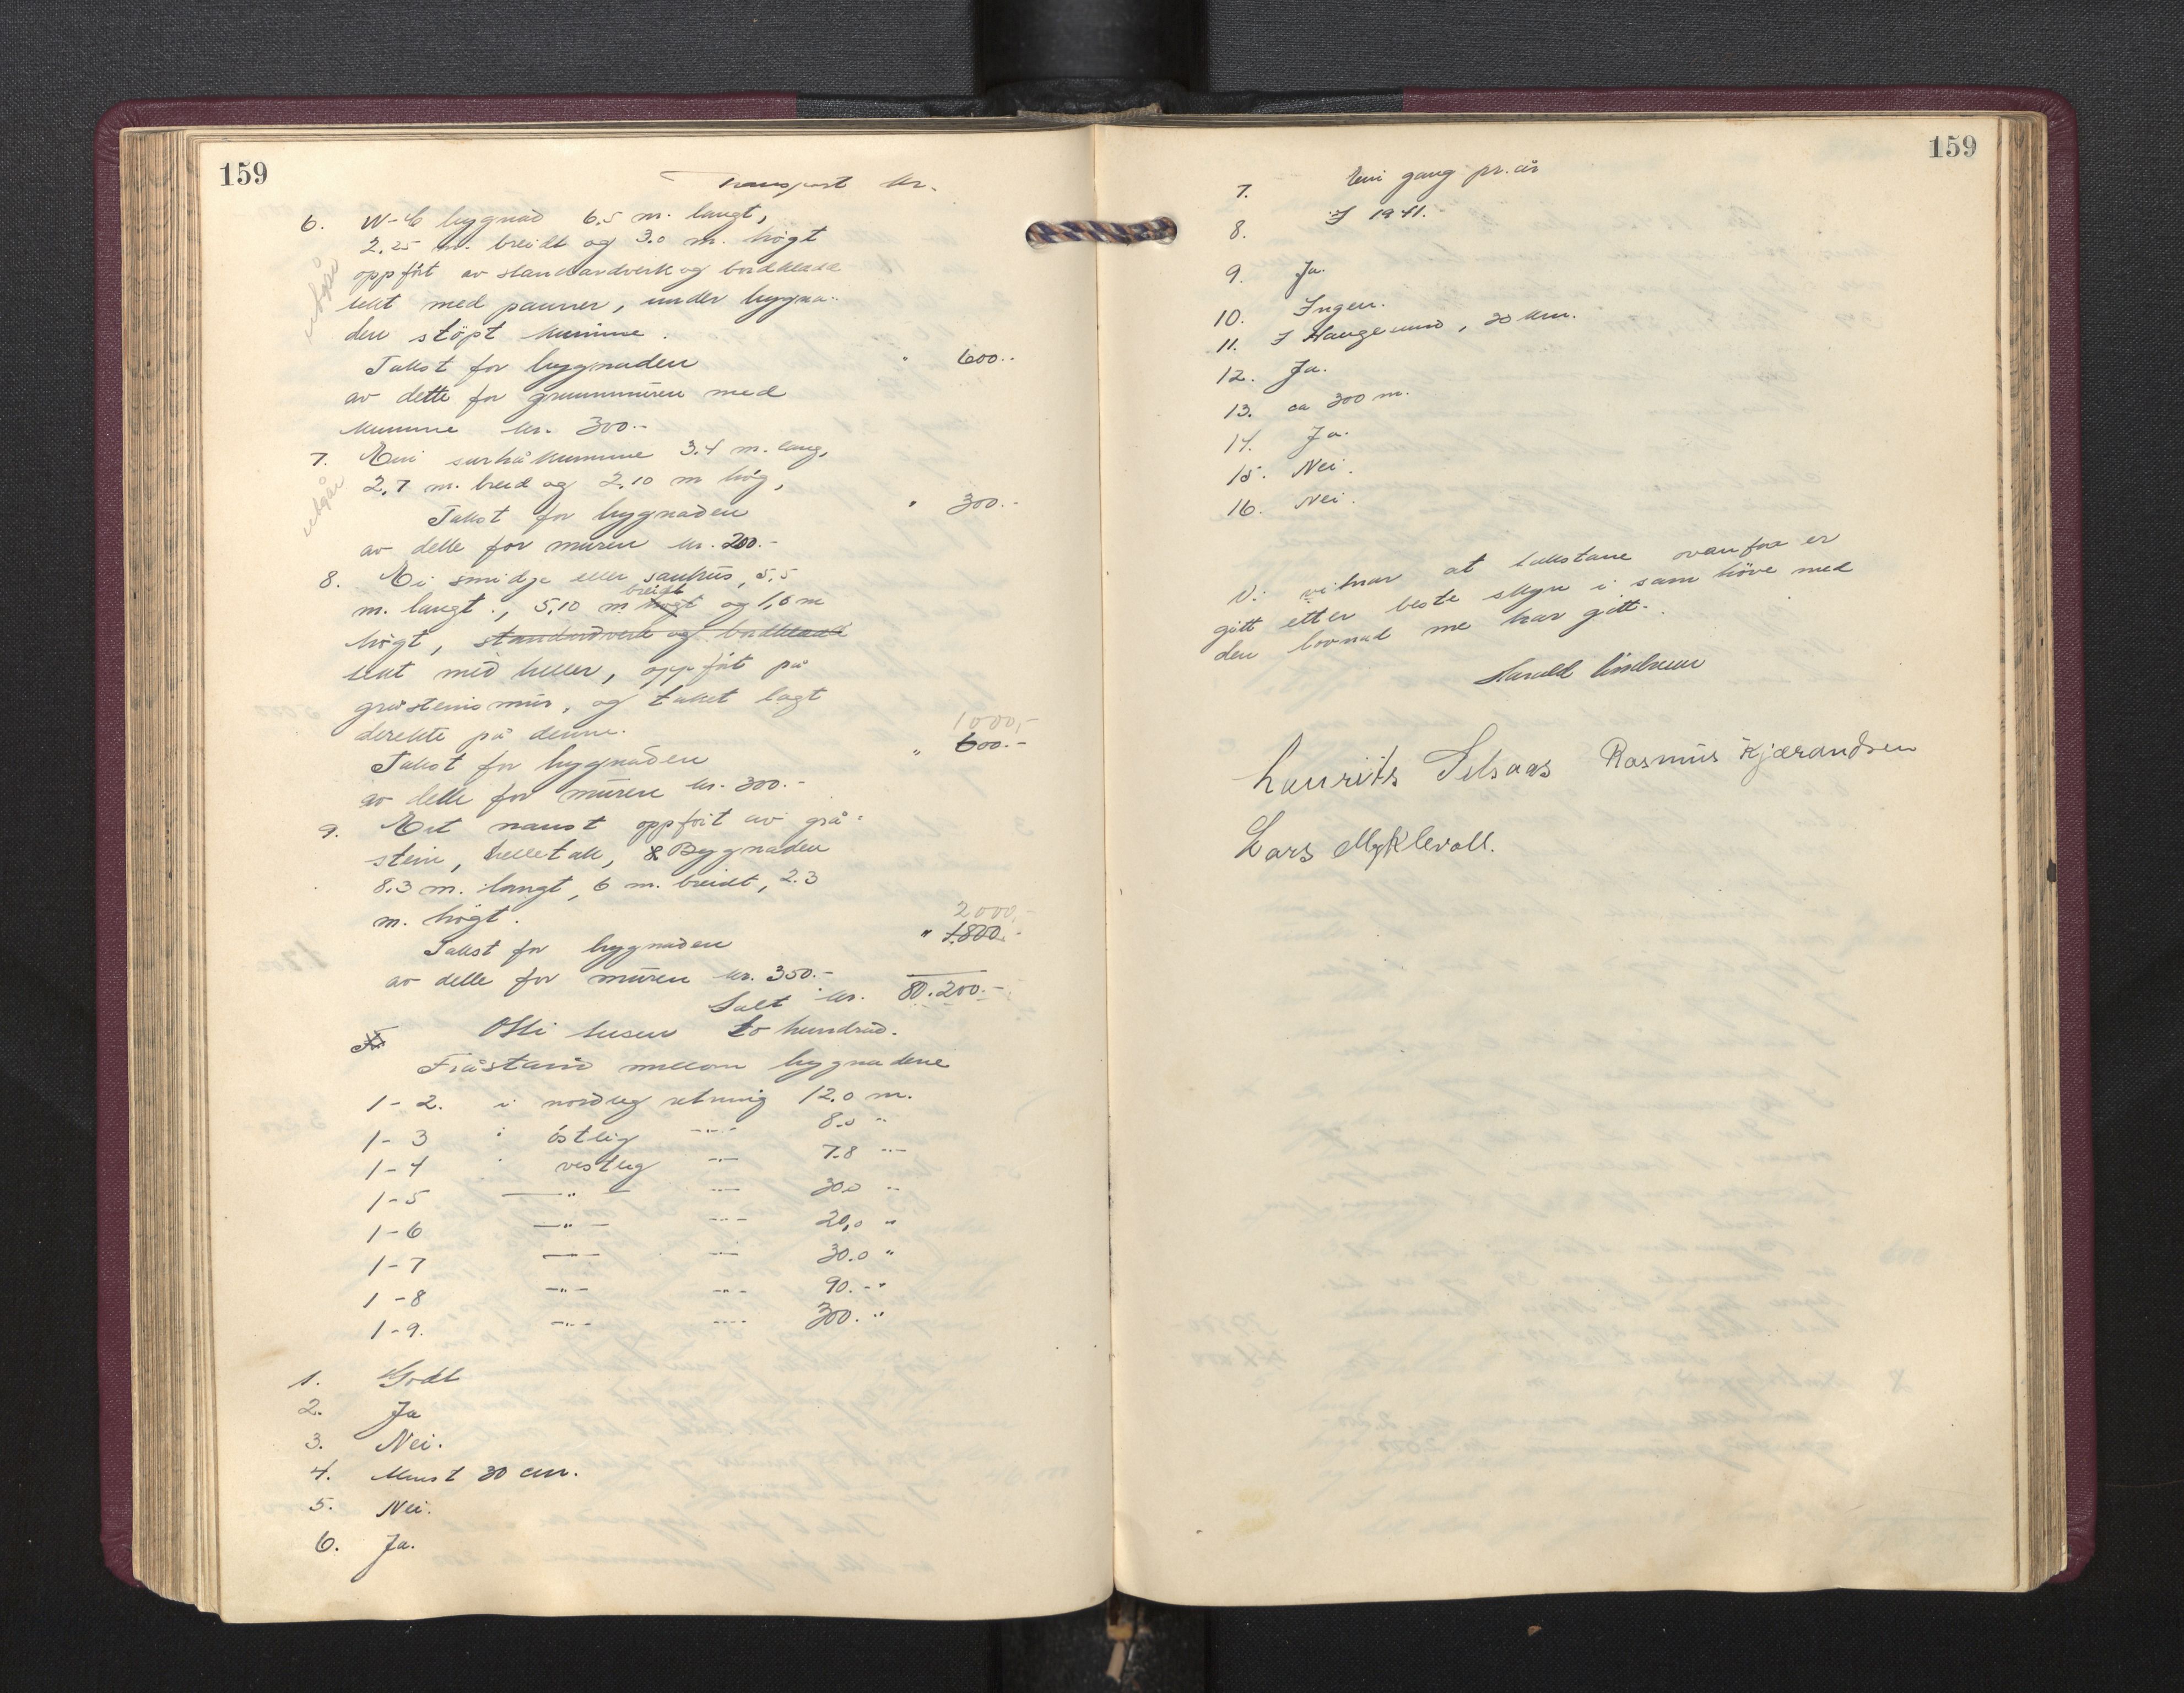 159
Transport kr.
6. W-C bygnad 6.5 m. langt,
2.25 m. breidt og 3.0 m. högt
oppfört av standardverk og bordkledd
tekt med panner, under bygna-
den stöpt kumme.
utgår
Takst for bygnaden " 600.-
av dette for grunnmuren med
kumme kr. 300.-
7. Ein surhåkumme 3.4 m. lang,
2,7 m. breid og 2.10 m hög,
utgår
Takst for bygnaden " 300.-
av dette for muren kr. 200.-
8. Ei smidje eller sauhus, 5,5
breidt
m. langt., 5,10 m högt og 1,6 m
högt, standardverk og bordkledd
tekt med heller, oppfört på
gråsteinsmur, og taket lagt
direkte på denne.
1000,-
Takst for bygnaden " 600.-
av dette for muren kr. 300.-
9. Eit naust oppfört av grå-
stein, helletak, & Bygnaden
8.3 m. langt, 6 m. breidt, 2.3
m. högt.
2000,-
Takst for bygnaden " 1.800.-
av dette for muren kr. 350.-
Salt kr. 80.200.-
Otti tusen to hundrad.
Fråstand mellom bygnadene
1-2. i nordleg retning 12.0 m.
1-3 i östleg -"- 8.0 "
1-4 " vestleg -"- 7.8 -"-
1-5 -"- -"- 30.0 "
1-6 -"- -"- 20,0 "
1-7 -"- -"- 30.0 "
1-8 -"- -"- 90.- "
1-9. -"- -"- 300. "
1. Godt
2. Ja
3. Nei.
4. Minst 30 cm.
5. Nei.
6. Ja.
159
7. Ein gang pr. år
8. I 1941.
9. Ja.
10. Ingen.
11. I Haugesund, 20 km.
12. Ja.
13. ca 300 m.
14. Ja.
15. Nei.
16. Nei.
Vi vitnar at takstane ovanfor er
gitt etter beste skyn i samhöve med
den lovnad me har gitt.
Harald
Laurits Selsaas Rasmus Kjærandsen
Lars Myklevoll.